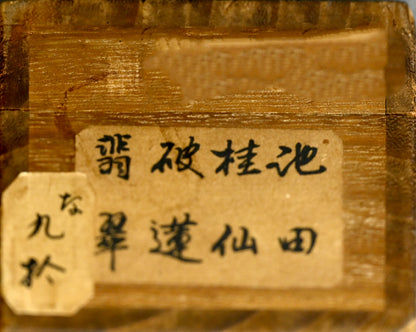 池田
桂仙
破蓮
翡翠
な九